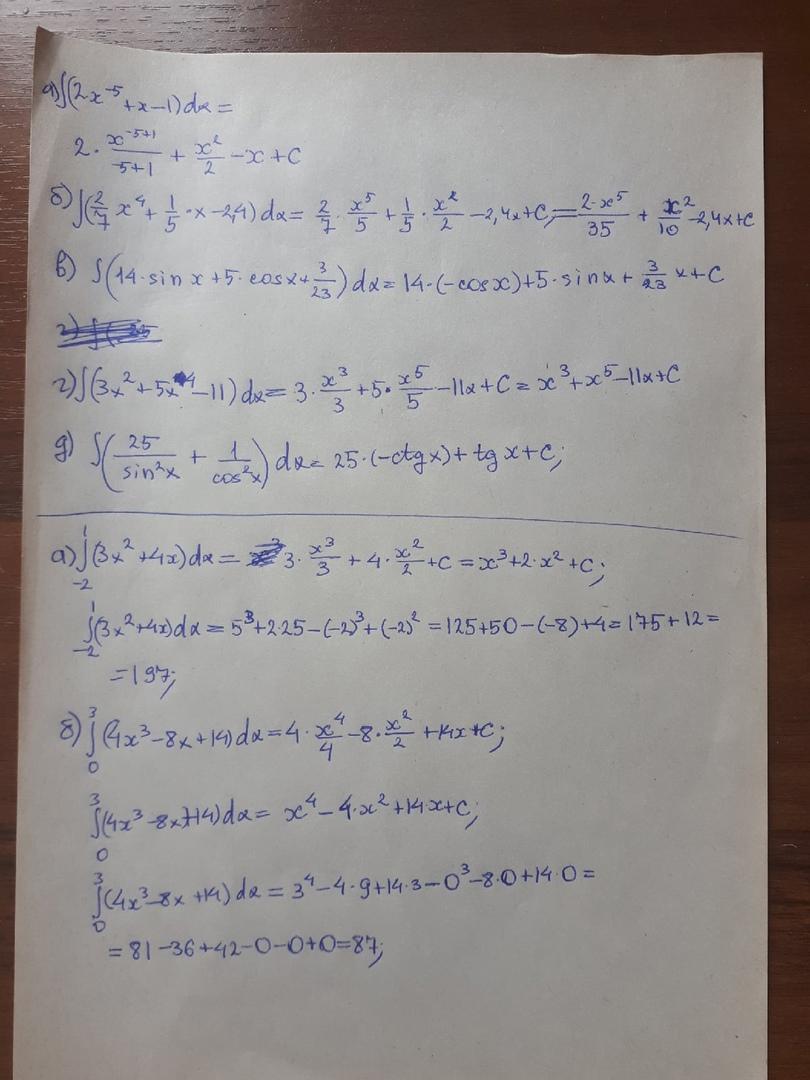 а) ∫(2x⁻⁵+x-1)dx=
2·x⁻⁵⁺¹/-5+1 + x²/2 -x+C
б) ∫(2/7 x⁴+1/5·x-2,4)dx= 2/7·x⁵/5+1/5·x²/2-2,4x+C,=2·x⁵/35 + x²/10-2,4x+C
в) ∫(14·sin x+5·cosx+3/23)dx=14·(-cosx)+5·sinx+3/23 x+C
г) ∫(3x²+5x⁴-11)dx=3·x³/3+5·x⁵/5-11x+C=x³+x⁵-11x+C
д) ∫(25/sin²x + 1/cos²x)dx=25·(-ctgx)+tgx+C;
а) ∫₋₂¹(3x²+4x)dx= 3·x³/3+4·x²/2+C=x³+2·x²+C;
∫₋₂¹(3x²+4x)dx=5³+2·25-(-2)³+(-2)²=125+50-(-8)+4=175+12=
=197;
б) ∫₀³(4x³-8x+14)dx=4·x⁴/4-8·x²/2+14x+C;
∫₀³(4x³-8x+14)dx= x⁴-4·x²+14·x+C;
∫₀³(4x³-8x+14)dx=3⁴-4·9+14·3-0³-8·0+14·0=
=81-36+42-0-0+0=87;